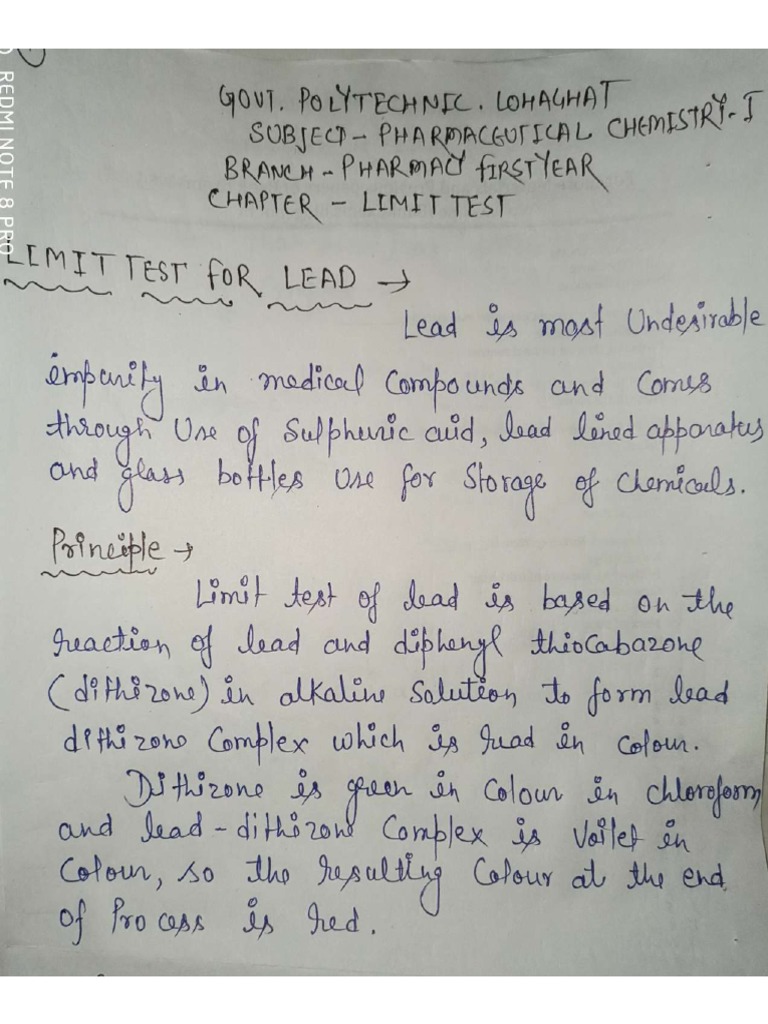 REDMI NOTE 8 PRO
GOVT. POLYTECHNIC. LOHAGHAT
SUBJECT - PHARMACEUTICAL CHEMISTRY-I
BRANCH - PHARMACY FIRST YEAR
CHAPTER - LIMIT TEST
LIMIT TEST FOR LEAD →
Lead is most Undesirable
impurity in medical Compounds and Comes
through Use of Sulphuric acid, lead lined apparatus
and glass bottles Use for Storage of Chemicals.
Principle →
Limit test of lead is based on the
reaction of lead and diphenyl thiocabazone
(dithizone) in alkaline Solution to form lead
dithizone Complex which is read in Colour.
Dithizone is green in Colour in chloroform
and lead-dithizone Complex is Voilet in
Colour, so the resulting Colour at the end
of Process is red.